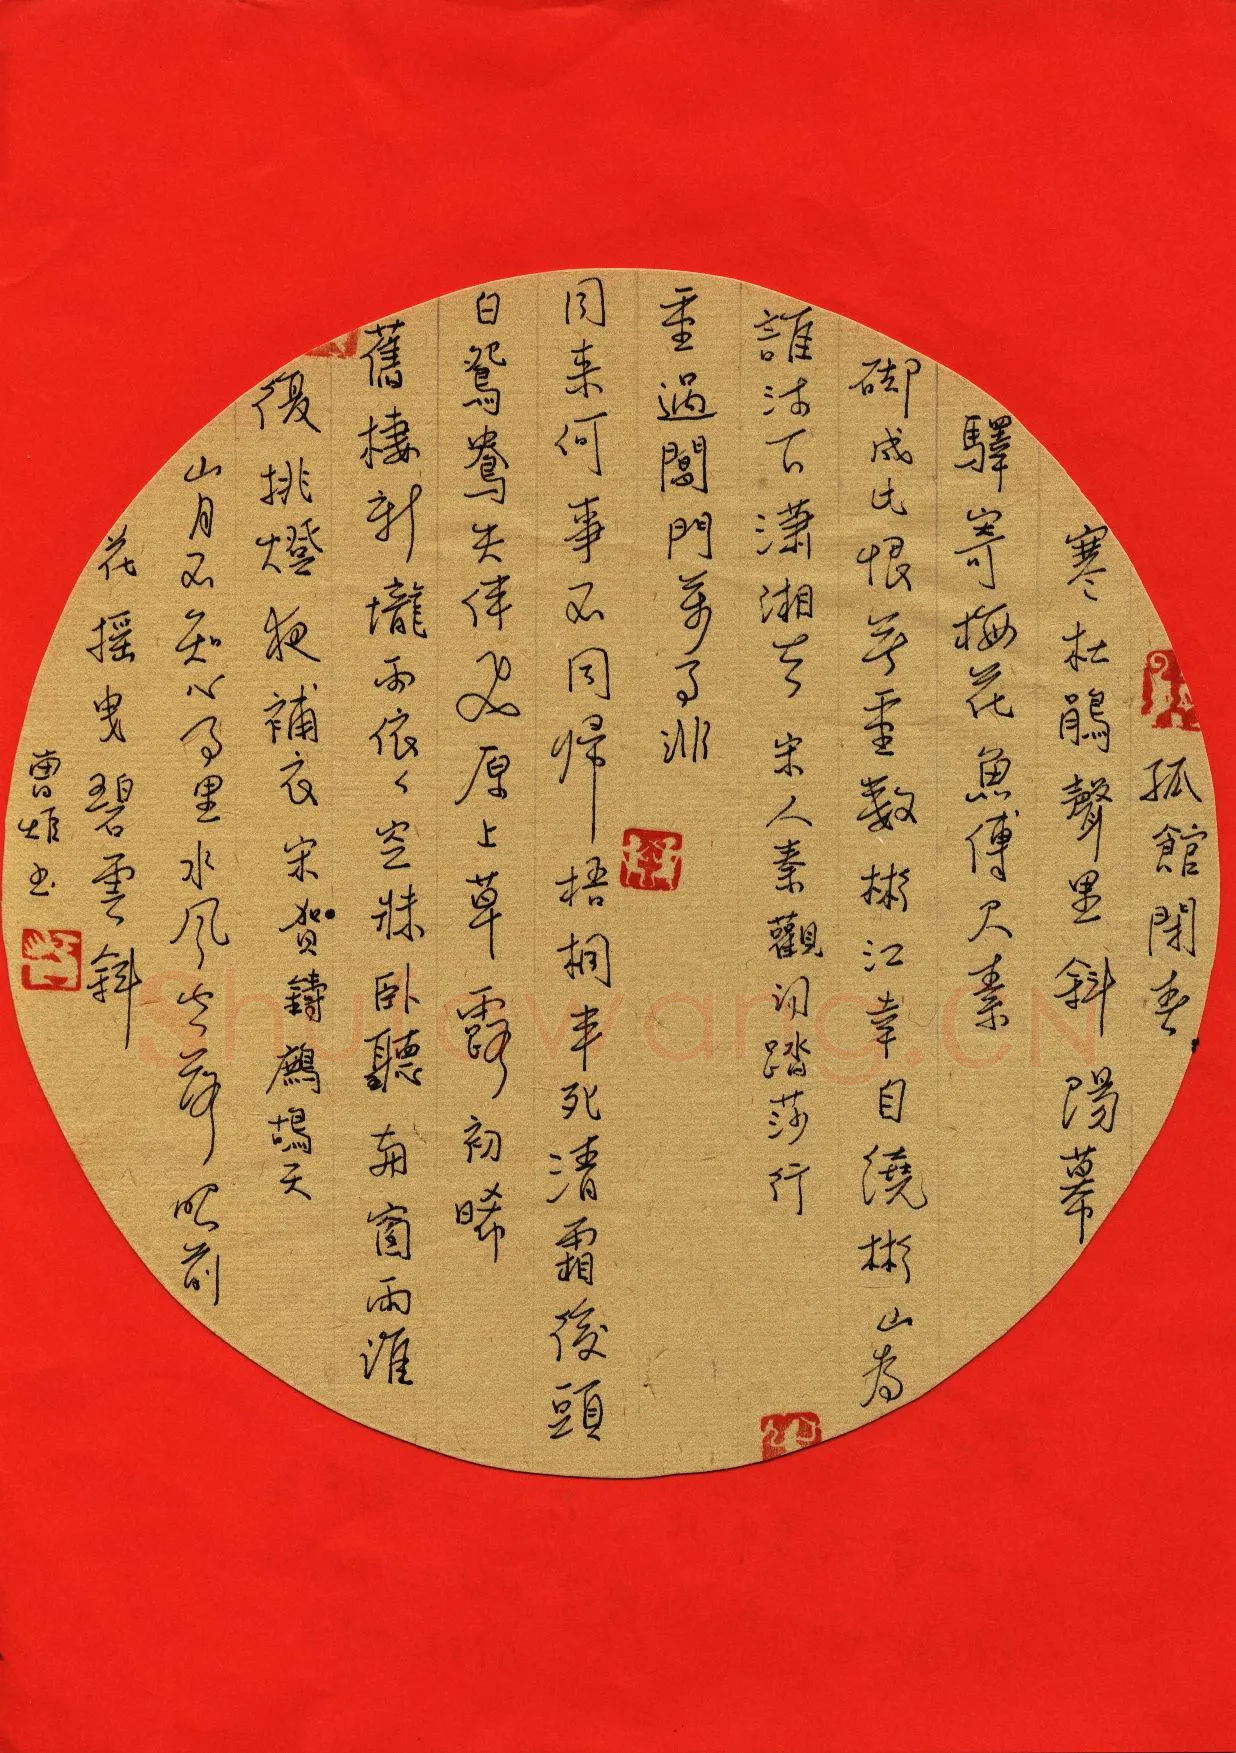 孤館閉春
寒杜鵑聲里斜陽幕
驛寄梅花魚傅尺素
砌成此恨無重數彬江幸自繞彬山為
誰流下瀟湘去 宋人秦觀詞踏莎行
重過閶門萬事非
同來何事不同歸梧桐半死清霜後頭
白鴛鴦失伴飛原上草露初晞
舊棲新壠兩依々空牀卧聽南窗雨誰
復挑燈夜補衣宋賀鑄鷓鴣天
山月不知心事里水風空落眼前
花搖曳碧雲斜
曹雄书
Shufawang.CN